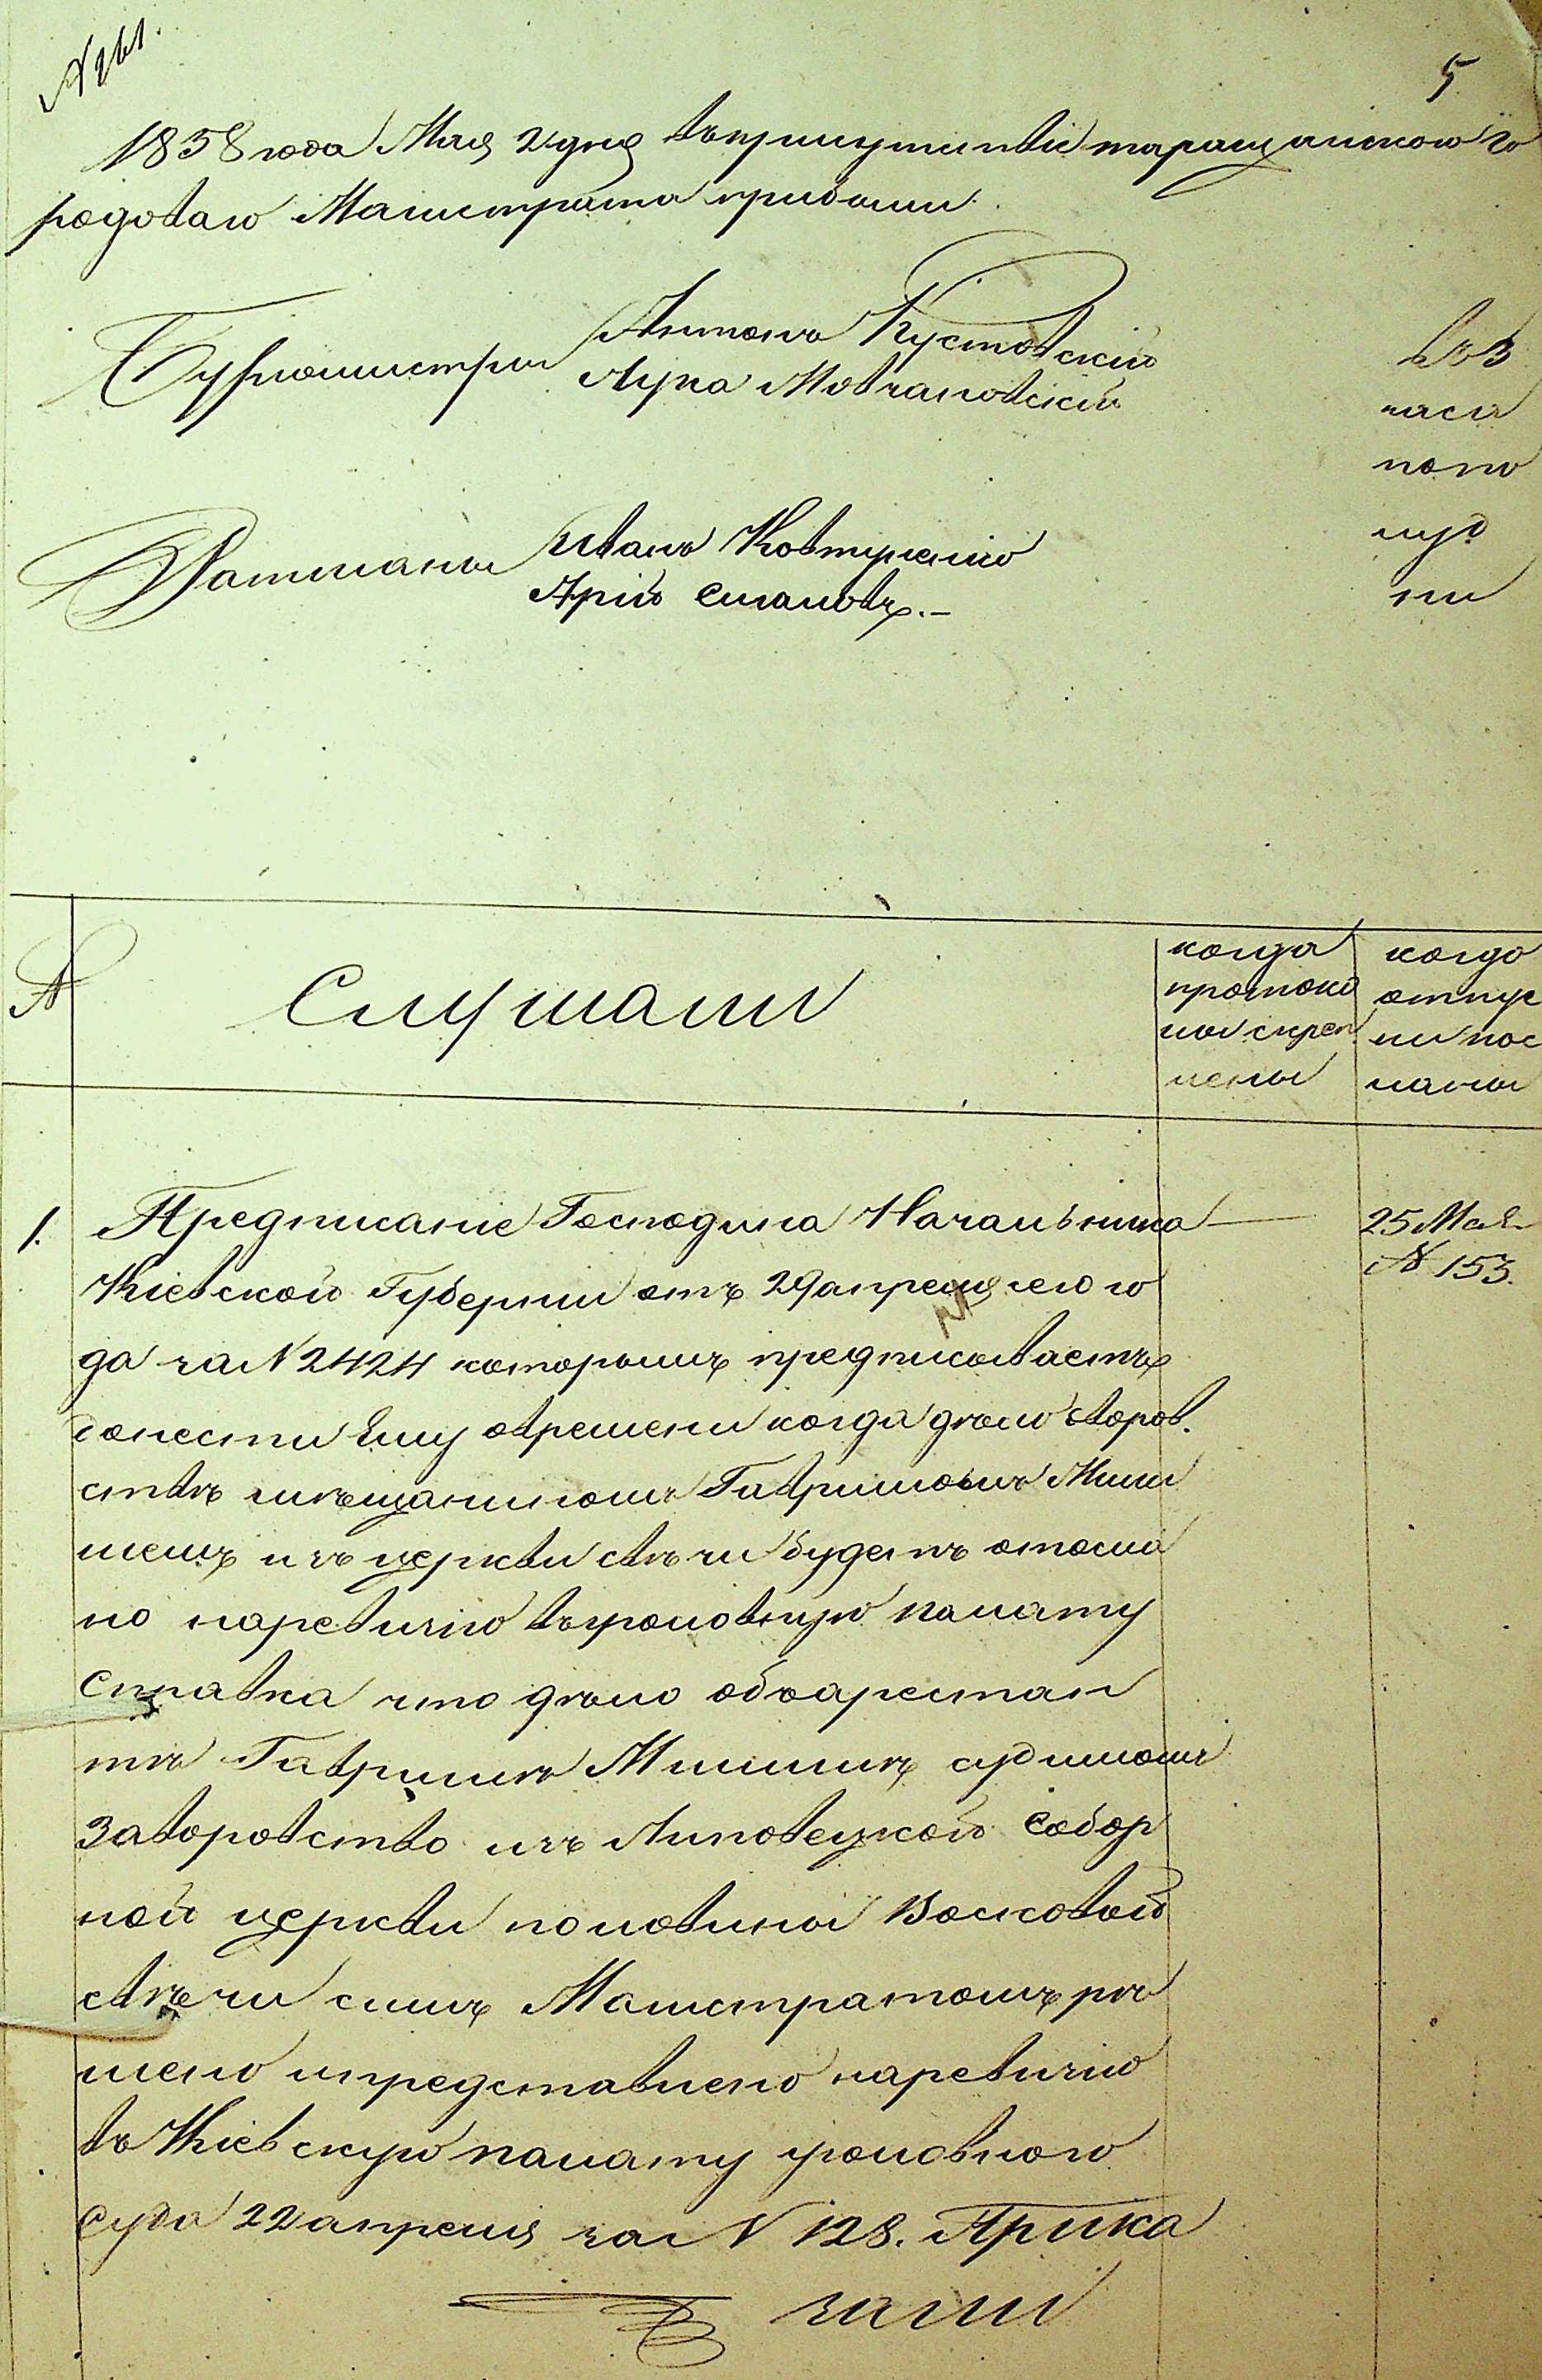 № 261.
5
1858 года Мая 2 дня въ присутствіе таращанского го
родоваго Магистрата прибыли
Бургомистры
Антонъ Кустовскій
Лука Мовчановскій
въ 3
часа
попо
луд
ни
Ратманы
Иванъ Ковтуненко
Арій Слановъ.–
№
Слушали
когда
протоко
лы скреп
лены
когда
отпус
ки пос
ланы
1.
Предписаніе Господина Начальника
Кіевской Губерніи отъ 29 апреля сего го
да за № 2424 которымъ предписываетъ
донести Ему овремени когда дѣло оворов.
ствѣ мѣщаниномъ Гавриломъ Миш
шемъ изъ церкви свѣчи будетъ отосла
но наревизію въ уголовную палату
Справка что дѣло объ арестан
тѣ Гаврилѣ Мишшѣ судимомъ
Заворовство изъ Липовецкой Собор
ной церкви половины Восковой
свѣчи симъ Магистратомъ рѣ
шено ипредставлено наревизію
въ Кіевскую палату уголовного
Суда 22 апреля за № 128. Прика
зали
25 Мая
№ 153.